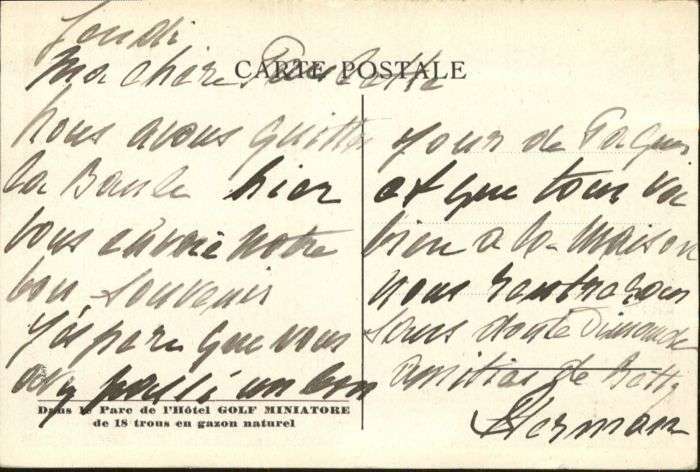 CARTE POSTALE
Jeudi
Ma chère Paulette
Nous avons quitté
la Baule hier
vous envoie notre
bon souvenir
J'éspère que vous
avez passé un bon
jour de Paques
et que tout va
bien a la maison
nous rentrerons
sans doute Dimanche
amitiés de Betty
Herman
Dans le Parc de l'Hôtel GOLF MINIATORE
de 18 trous en gazon naturel